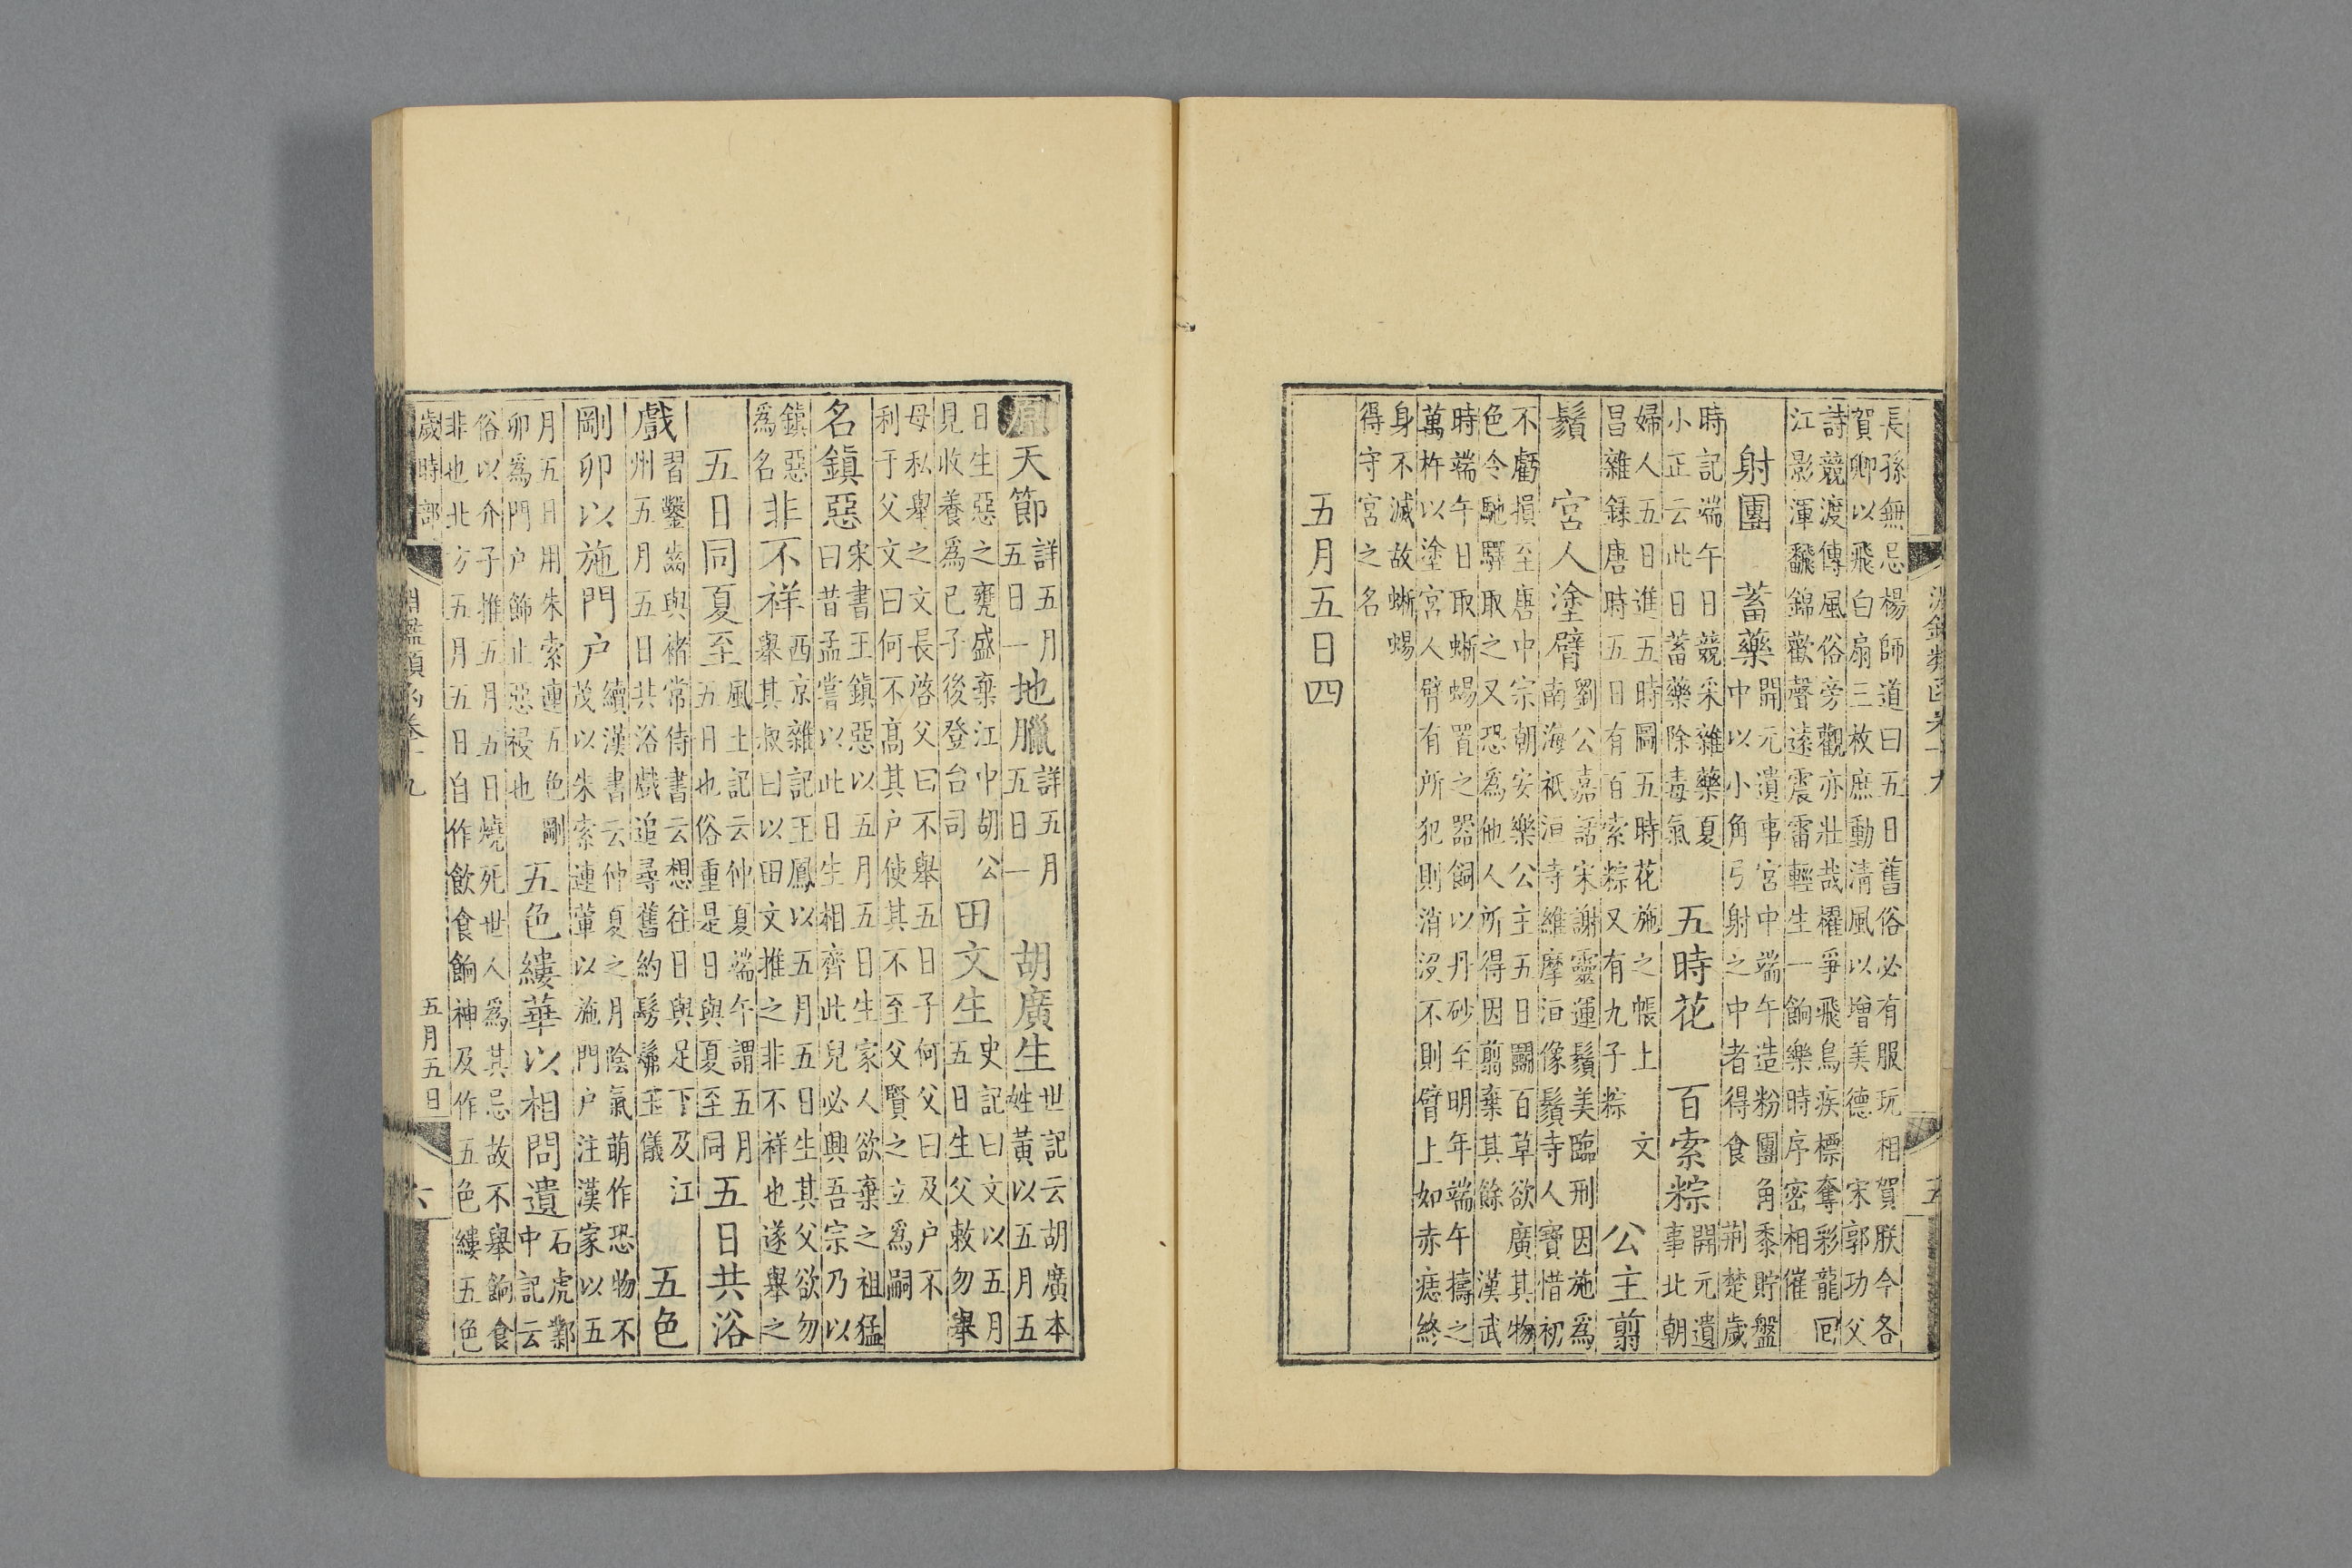 淵鑑類函卷十九 五
長孫無忌楊師道曰五日舊俗必有服玩相賀朕今各
賀卿以飛白扇三枚庶動清風以增美德 宋郭功父
詩競渡傳風俗旁觀亦壯哉櫂爭飛鳥疾標奪彩龍回
江影渾翻錦歡聲遠震雷輕生一餉樂時序密相催
射團 蓄藥
開元遺事宮中端午造粉團角黍貯盤
中以小角弓射之中者得食 荆楚歲
時記端午日競采雜藥夏
小正云此日蓄藥除毒氣
五時花 百索粽
開元遺
事北朝
婦人五日進五時圖五時花施之帳上 文
昌雜錄唐時五日有百索粽又有九子粽
公主剪
鬚 宮人塗臂
劉公嘉話宋謝靈運鬚美臨刑因施為
南海祇洹寺維摩洹像鬚寺人寶惜初
不虧損至唐中宗朝安樂公主五日鬬百草欲廣其物
色令馳驛取之又恐為他人所得因剪棄其餘 漢武
時端午日取蜥蜴置之器飼以丹砂至明年端午擣之
萬杵以塗宮人臂有所犯則消沒不則臂上如赤痣終
身不滅故蜥蜴
得守宮之名
五月五日四
原 天節
詳五月
五日一
地臘
詳五月
五日一
胡廣生
世記云胡廣本
姓黃以五月五
日生惡之甕盛棄江中胡公
見收養為己子後登台司
田文生
史記曰文以五月
五日生父敕勿舉
母私舉之文長啓父曰不舉五日子何父曰及户不
利于父文曰何不高其户使其不至父賢之立為嗣
名鎮惡
宋書王鎮惡以五月五日生家人欲棄之祖猛
曰昔孟嘗以此日生相齊此兒必興吾宗乃以
鎮惡
為名
非不祥
西京雜記王鳳以五月五日生其父欲勿
舉其叔曰以田文推之非不祥也遂舉之
五日同夏至
風土記云仲夏端午謂五月
五日也俗重是日與夏至同
五日共浴
戲
習鑿齒與褚常侍書云想往日與足下及江
州五月五日共浴戲追尋舊約髣髴玉儀
五色
剛卯以施門户
續漢書云仲夏之月陰氣萌作恐物不
茂以朱索連葷以施門户注漢家以五
月五日用朱索連五色剛
卯為門户飾止惡祲也
五色縷華以相問遺
石虎鄴
中記云
俗以介子推五月五日燒死世人為其忌故不舉餉食
非也北方五月五日自作飲食餉神及作五色縷五色
歲時部
淵鑑類函卷十九 五月五日 六